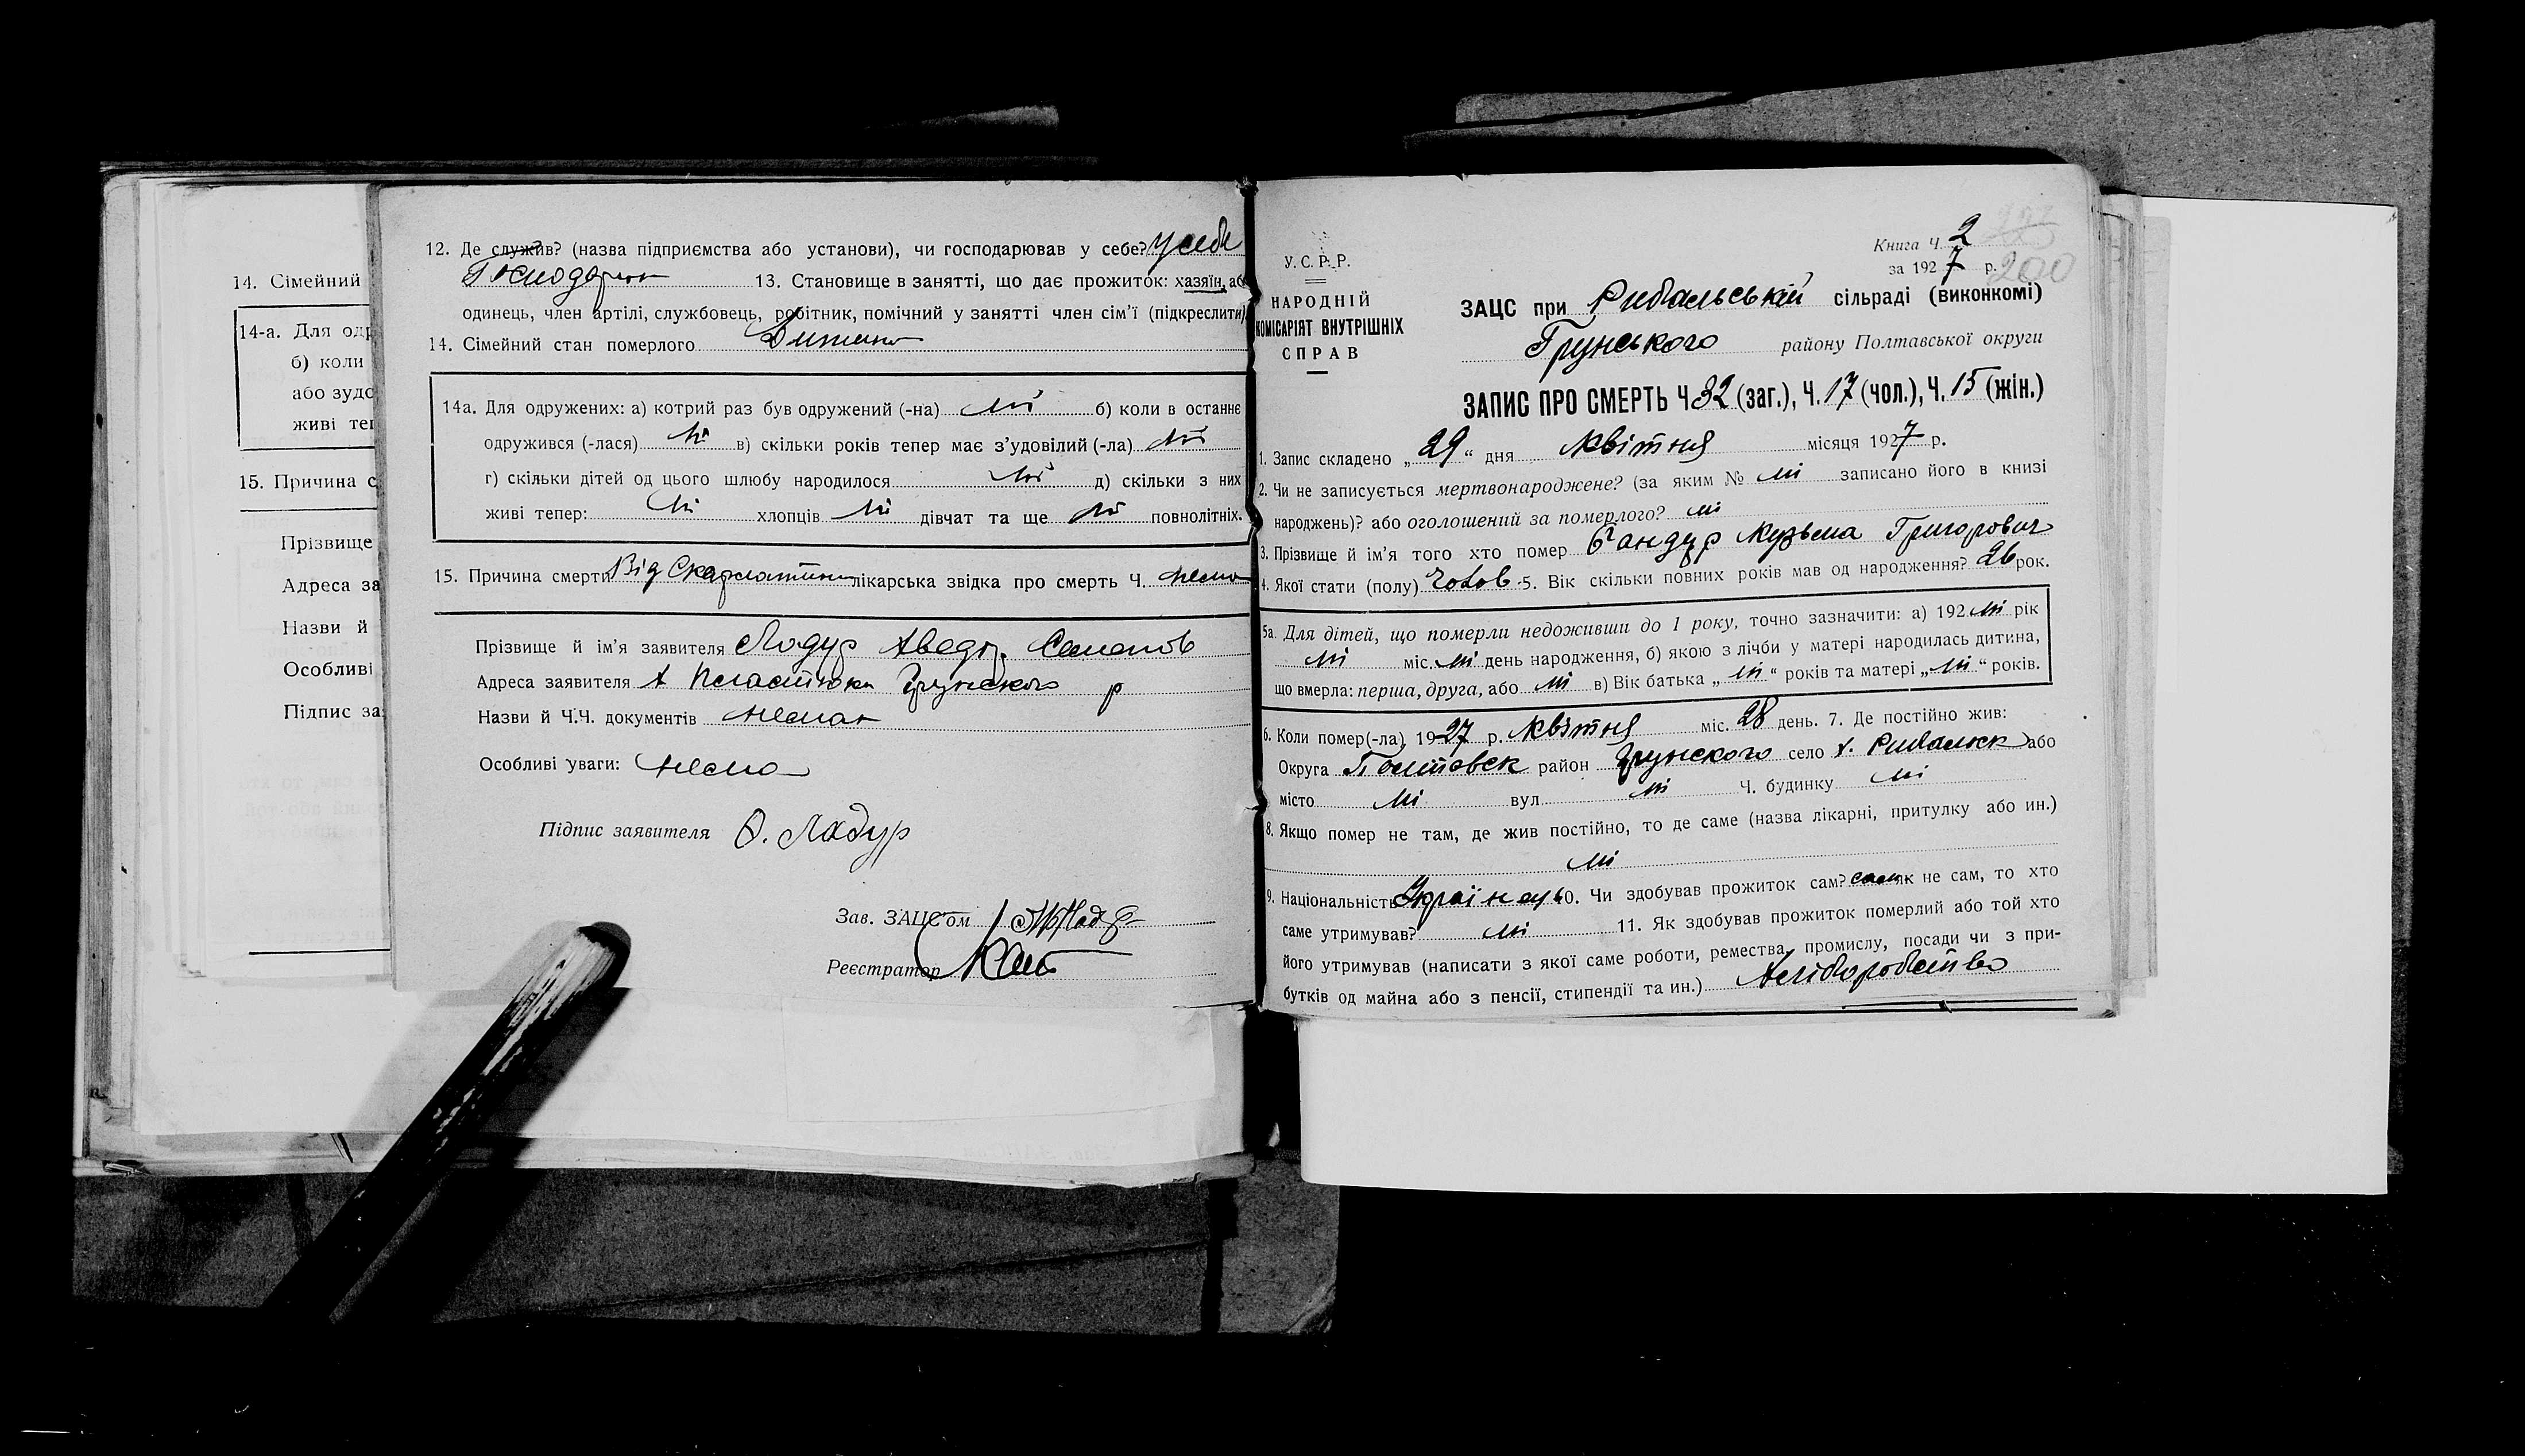 14. Сімейний
14-а. Для одр
б) коли
або зудо
живі теп
15. Причина с
Прізвище
Адреса за
Назви й
Особливі
Підпис за
12. Де служив? (назва підприємства або установи), чи господарював у себе? у себе
13. Становище в занятті, що дає прожиток: хазяїн, або
одинець, член артілі, службовець, робітник, помічний у занятті член сім'ї (підкреслити)
14. Сімейний стан померлого Дитина
14а. Для одружених: а) котрий раз був одружений (-на) ні б) коли в останнє
одружився (-лася) ні в) скільки років тепер має з'удовілий (-ла) ні
г) скільки дітей од цього шлюбу народилося ні д) скільки з них
живі тепер: ні хлопців ні дівчат та ще ні повнолітніх.
15. Причина смерти Від Скарлатини лікарська звідка про смерть Ч. нема
Прізвище й ім'я заявителя Ладур Авед. Семенов
Адреса заявителя х Грунского р
Назви й Ч.Ч. документів немає
Особливі уваги: нема
Підпис заявителя Ладур
Зав. ЗАЦС'ом
Реєстратор
У. С. Р. Р.
НАРОДНІЙ
КОМІСАРІЯТ ВНУТРІШНІХ
СПРАВ
Книга Ч. 2
за 1927 р. 200
ЗАЦС при Рибальській сільраді (виконкомі)
Грунського району Полтавської округи
ЗАПИС ПРО СМЕРТЬ Ч 32 (заг.), Ч. 17 (чол.), Ч. 15 (жін.)
1. Запис складено „29“ дня Квітня місяця 1927 р.
2. Чи не записується мертвонароджене? (за яким № ні записано його в книзі
народжень)? або оголошений за померлого? ні
3. Прізвище й ім'я того хто помер Бандур Кузьма Григорович
4. Якої стати (полу) чолов. 5. Вік скільки повних років мав од народження? 26 рок.
5а. Для дітей, що померли недоживши до 1 року, точно зазначити: а) 192 ні рік
ні міс. ні день народження, б) якою з лічби у матері народилась дитина,
що вмерла: перша, друга, або ні в) Вік батька „ні“ років та матері „ні“ років.
6. Коли помер(-ла) 1927 р. Квітня міс. 28 день. 7. Де постійно жив:
Округа Полтавськ район Грунского село х. Рибальск або
місто ні вул. ні Ч. будинку ні
8. Якщо помер не там, де жив постійно, то де саме (назва лікарні, притулку або ин.)
ні
9. Національність Українець 10. Чи здобував прожиток сам? сам як не сам, то хто
саме утримував? ні 11. Як здобував прожиток померлий або той хто
його утримував (написати з якої саме роботи, ремества, промислу, посади чи з при-
бутків од майна або з пенсії, стипендії та ин.) Хліборобство